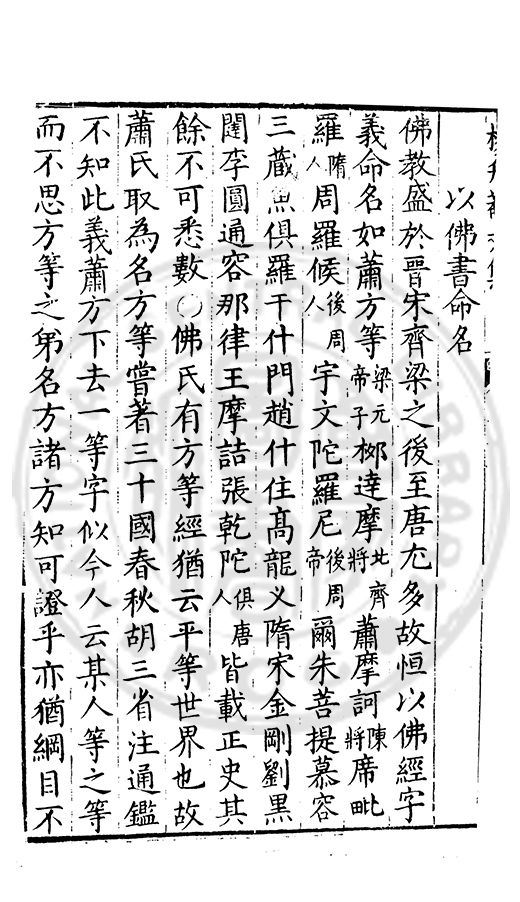 以佛書命名
佛教盛於晋宋齊梁之後至唐尤多故恒以佛經字
義命名如蕭方等梁元帝子栁達摩北齊將蕭摩訶陳將席毗
羅隋人周羅㬋後周人宇文陀羅尼後周帝爾朱菩提慕容
三藏魚俱羅干什門趙什住髙龍义隋宋金剛劉黒
闥李圓通容那律王摩詰張乾陀俱唐人皆載正史其
餘不可悉數○佛氏有方等經猶云平等世界也故
蕭氏取為名方等嘗著三十國春秋胡三省注通鑑
不知此義蕭方下去一等字似今人云某人等之等
而不思方等之弟名方諸方知可證乎亦猶綱目不